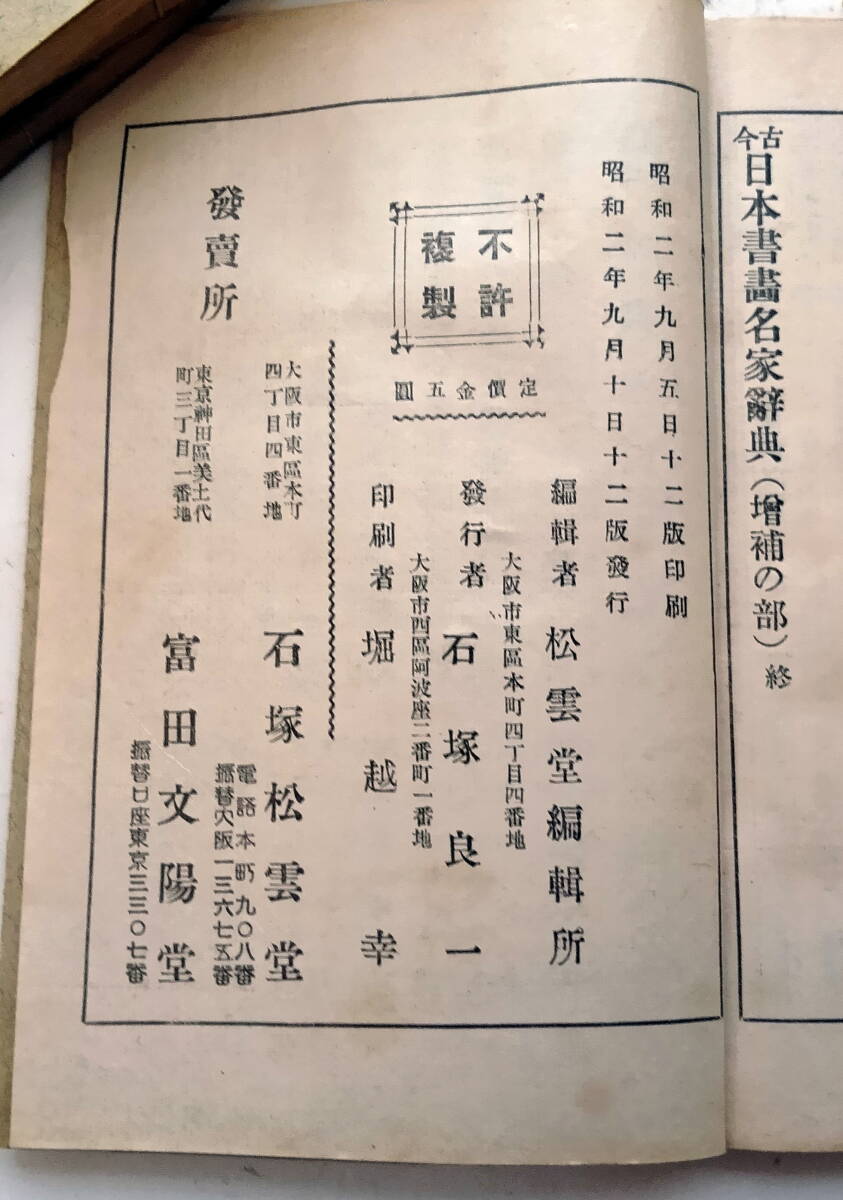 古今日本書畫名家辭典(增補の部)終
昭和二年九月五日十二版印刷
昭和二年九月十日十二版發行
不許
複製
定價金五圓
編輯者 松雲堂編輯所
大阪市東區本町四丁目四番地
發行者 石塚良一
大阪市西區阿波座二番町一番地
印刷者 堀越幸
發賣所
大阪市東區本町
四丁目四番地
石塚松雲堂
電話本町九〇八番
振替大阪一三六七五番
東京神田區美土代
町二丁目一番地
富田文陽堂
振替口座東京三三〇七番